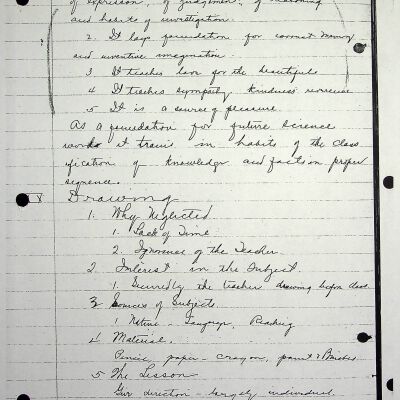 of expression, of judgment, of reasoning
and habits of investigation.
2. It lays foundation for correct memory
and inventive imagination.
3 It teaches love for the beautiful
4 It teaches sympathy kindness reverence
5 It is a source of pleasure.
As a foundation for future Science
work it trains in habits of the class
ification of knowledge and facts in proper
sequence.
V Drawing
1. Why Neglected
1. Lack of Time
2. Ignorance of the Teacher.
2. Interest in the Subject.
1. the teacher drawing before class
3 Sources of Subjects
1 Nature - Language, Reading
4 Material.
Pencil, paper - crayon, paint & Brushes
5 The Lesson
Give direction - largely individual